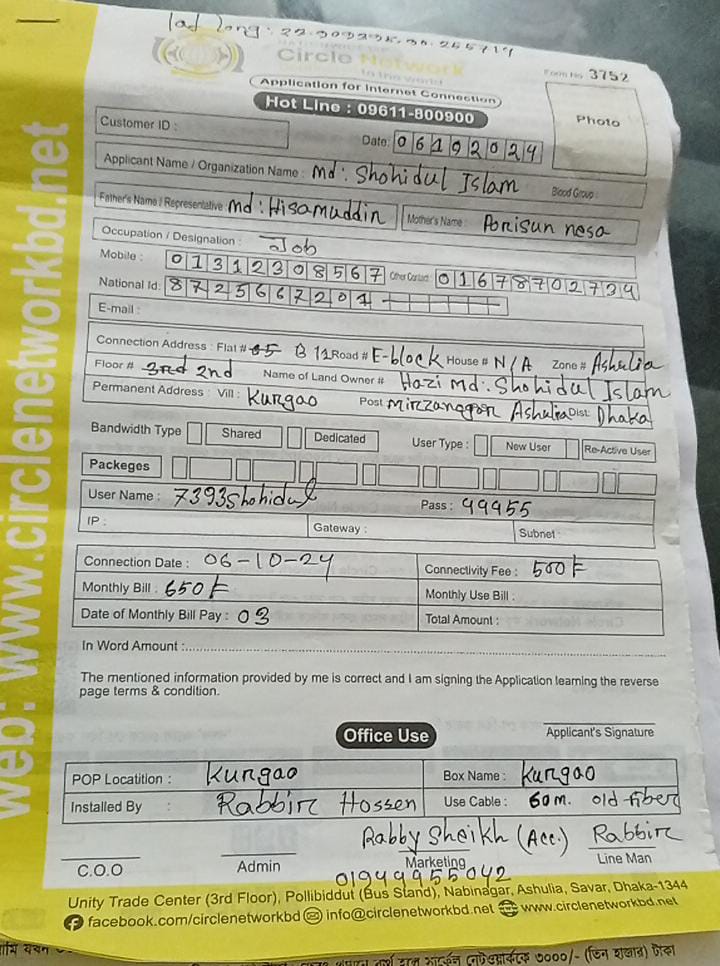 lad long: 22.909235, 90.255714
Circle Network
to the world
Form No 3752
Application for Internet Connection
Hot Line : 09611-800900
Photo
Customer ID :
Date: 06192024
Applicant Name / Organization Name : Md: Shohidul Islam Blood Group :
Father's Name / Representative : md: Hisamuddin Mother's Name : Porisun nesa
Occupation / Designation : Job
Mobile : 01312308567 Other Contact : 01678702734
National Id: 8725667201
E-mail :
Connection Address : Flat # 05 B 12 Road # E-block House # N/A Zone # Ashulia
Floor # 3rd 2nd Name of Land Owner # Hazi Md: Shohidul Islam
Permanent Address : Vill : Kurgao Post Mirzanagor Ashulia Dist: Dhaka
Bandwidth Type Shared Dedicated User Type : New User Re-Active User
Packeges
User Name : 7393Shohidul Pass : 99955
IP : Gateway : Subnet :
Connection Date : 06-10-24 Connectivity Fee : 500 F
Monthly Bill : 650 F Monthly Use Bill :
Date of Monthly Bill Pay : 03 Total Amount :
In Word Amount :
The mentioned information provided by me is correct and I am signing the Application learning the reverse
page terms & condition.
Office Use
Applicant's Signature
POP Locatition : Kurgao Box Name : Kurgao
Installed By : Rabbir Hossen Use Cable : 60m. old fiber
Rabby Sheikh (Acc.) Rabbir
C.O.O Admin Marketing Line Man
01949955042
Unity Trade Center (3rd Floor), Pollibiddut (Bus Stand), Nabinagar, Ashulia, Savar, Dhaka-1344
facebook.com/circlenetworkbd info@circlenetworkbd.net www.circlenetworkbd.net
web: www.circlenetworkbd.net
সার্কেল নেটওয়ার্ককে ৩০০০/- (তিন হাজার) টাকা